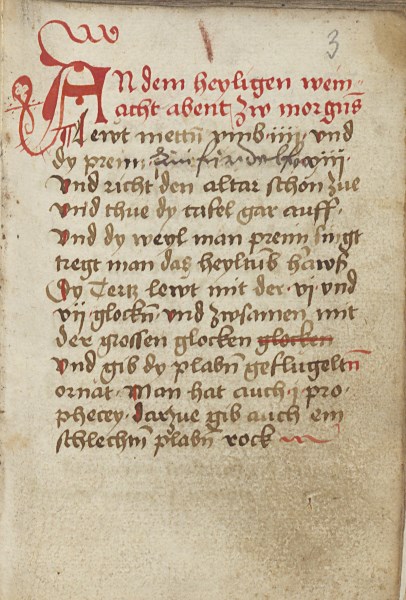 3
AN dem heyligen wein
acht abent zw morgns̄
Lewt mettn̄ vmb · iiij · vnd
dy preim
Vnd richt den altar schon zue
vnd thue dy tafel gar auff ·
Vnd dy weyl man preim singt
tregt man das heyltūb herawß
Dy Tertz lewt mit der · vj · vnd
vij · glockn̄ · vnd zwsamen mit
der grossen glocken glocken
Vnd gib dy plabn̄ geflugeltn̄
ornat · Man hat auch · j · pro ·
phecey · darzue gib auch ein
schlechtn̄ plabn̄ rock